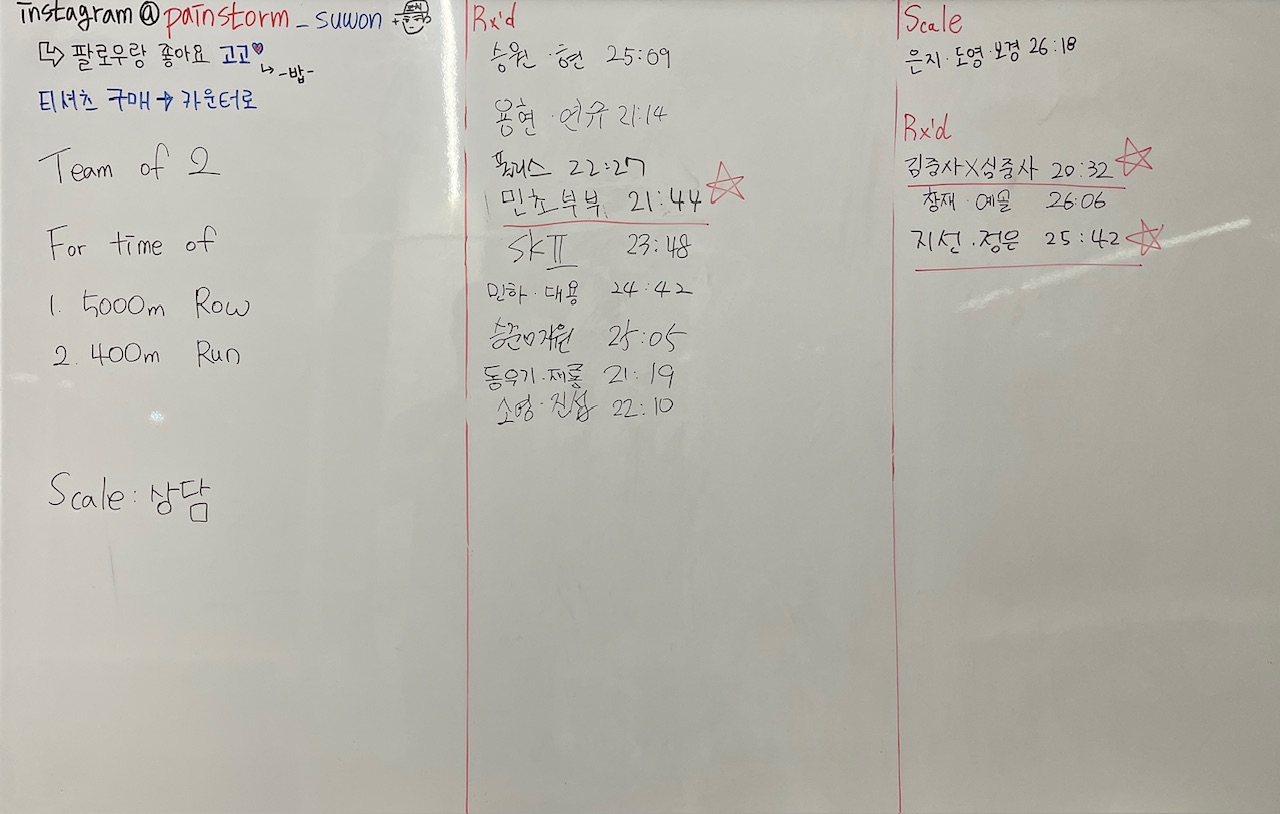 instagram@painstorm_suwon
팔로우랑 좋아요 고고
-밥-
티셔츠 구매→카운터로
Team of 2
For time of
1. 5000m Row
2. 400m Run
Scale: 상담
Rx'd
승원·현 25:09
용현·연규 21:14
22:27
민초부부 21:44
SKII 23:48
민하·대용 24:42
25:05
동우기·재롱 21:19
소영·진섭 22:10
Scale
은지·도영·보경 26:18
Rx'd
김중사X심중사 20:32
창재·예솔 26:06
지선·정은 25:42